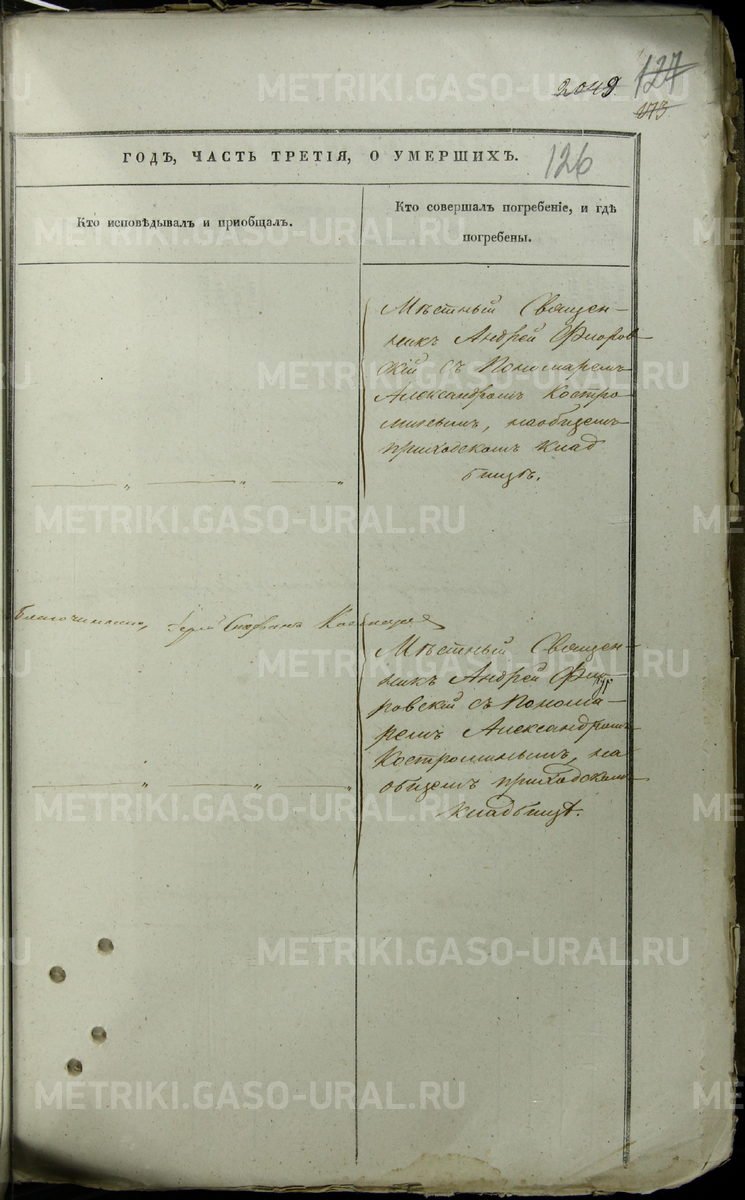 2049
127
273
126
ГОДЪ, ЧАСТЬ ТРЕТІЯ, О УМЕРШИХЪ.
Кто исповѣдывалъ и приобщалъ.
Кто совершалъ погребеніе, и гдѣ
погребены.
Мѣстный Священ-
никъ Андрей Флоров-
скій съ Пономаремъ
Александромъ Костро
минымъ, на общемъ
приходскомъ клад
бищѣ.
Благочинный,
Мѣстный Священ-
никъ Андрей Фло
ровскій съ Понома-
ремъ Александромъ
Костроминымъ, на
общемъ приходскомъ
кладбищѣ.
METRIKI.GASO-URAL.RU